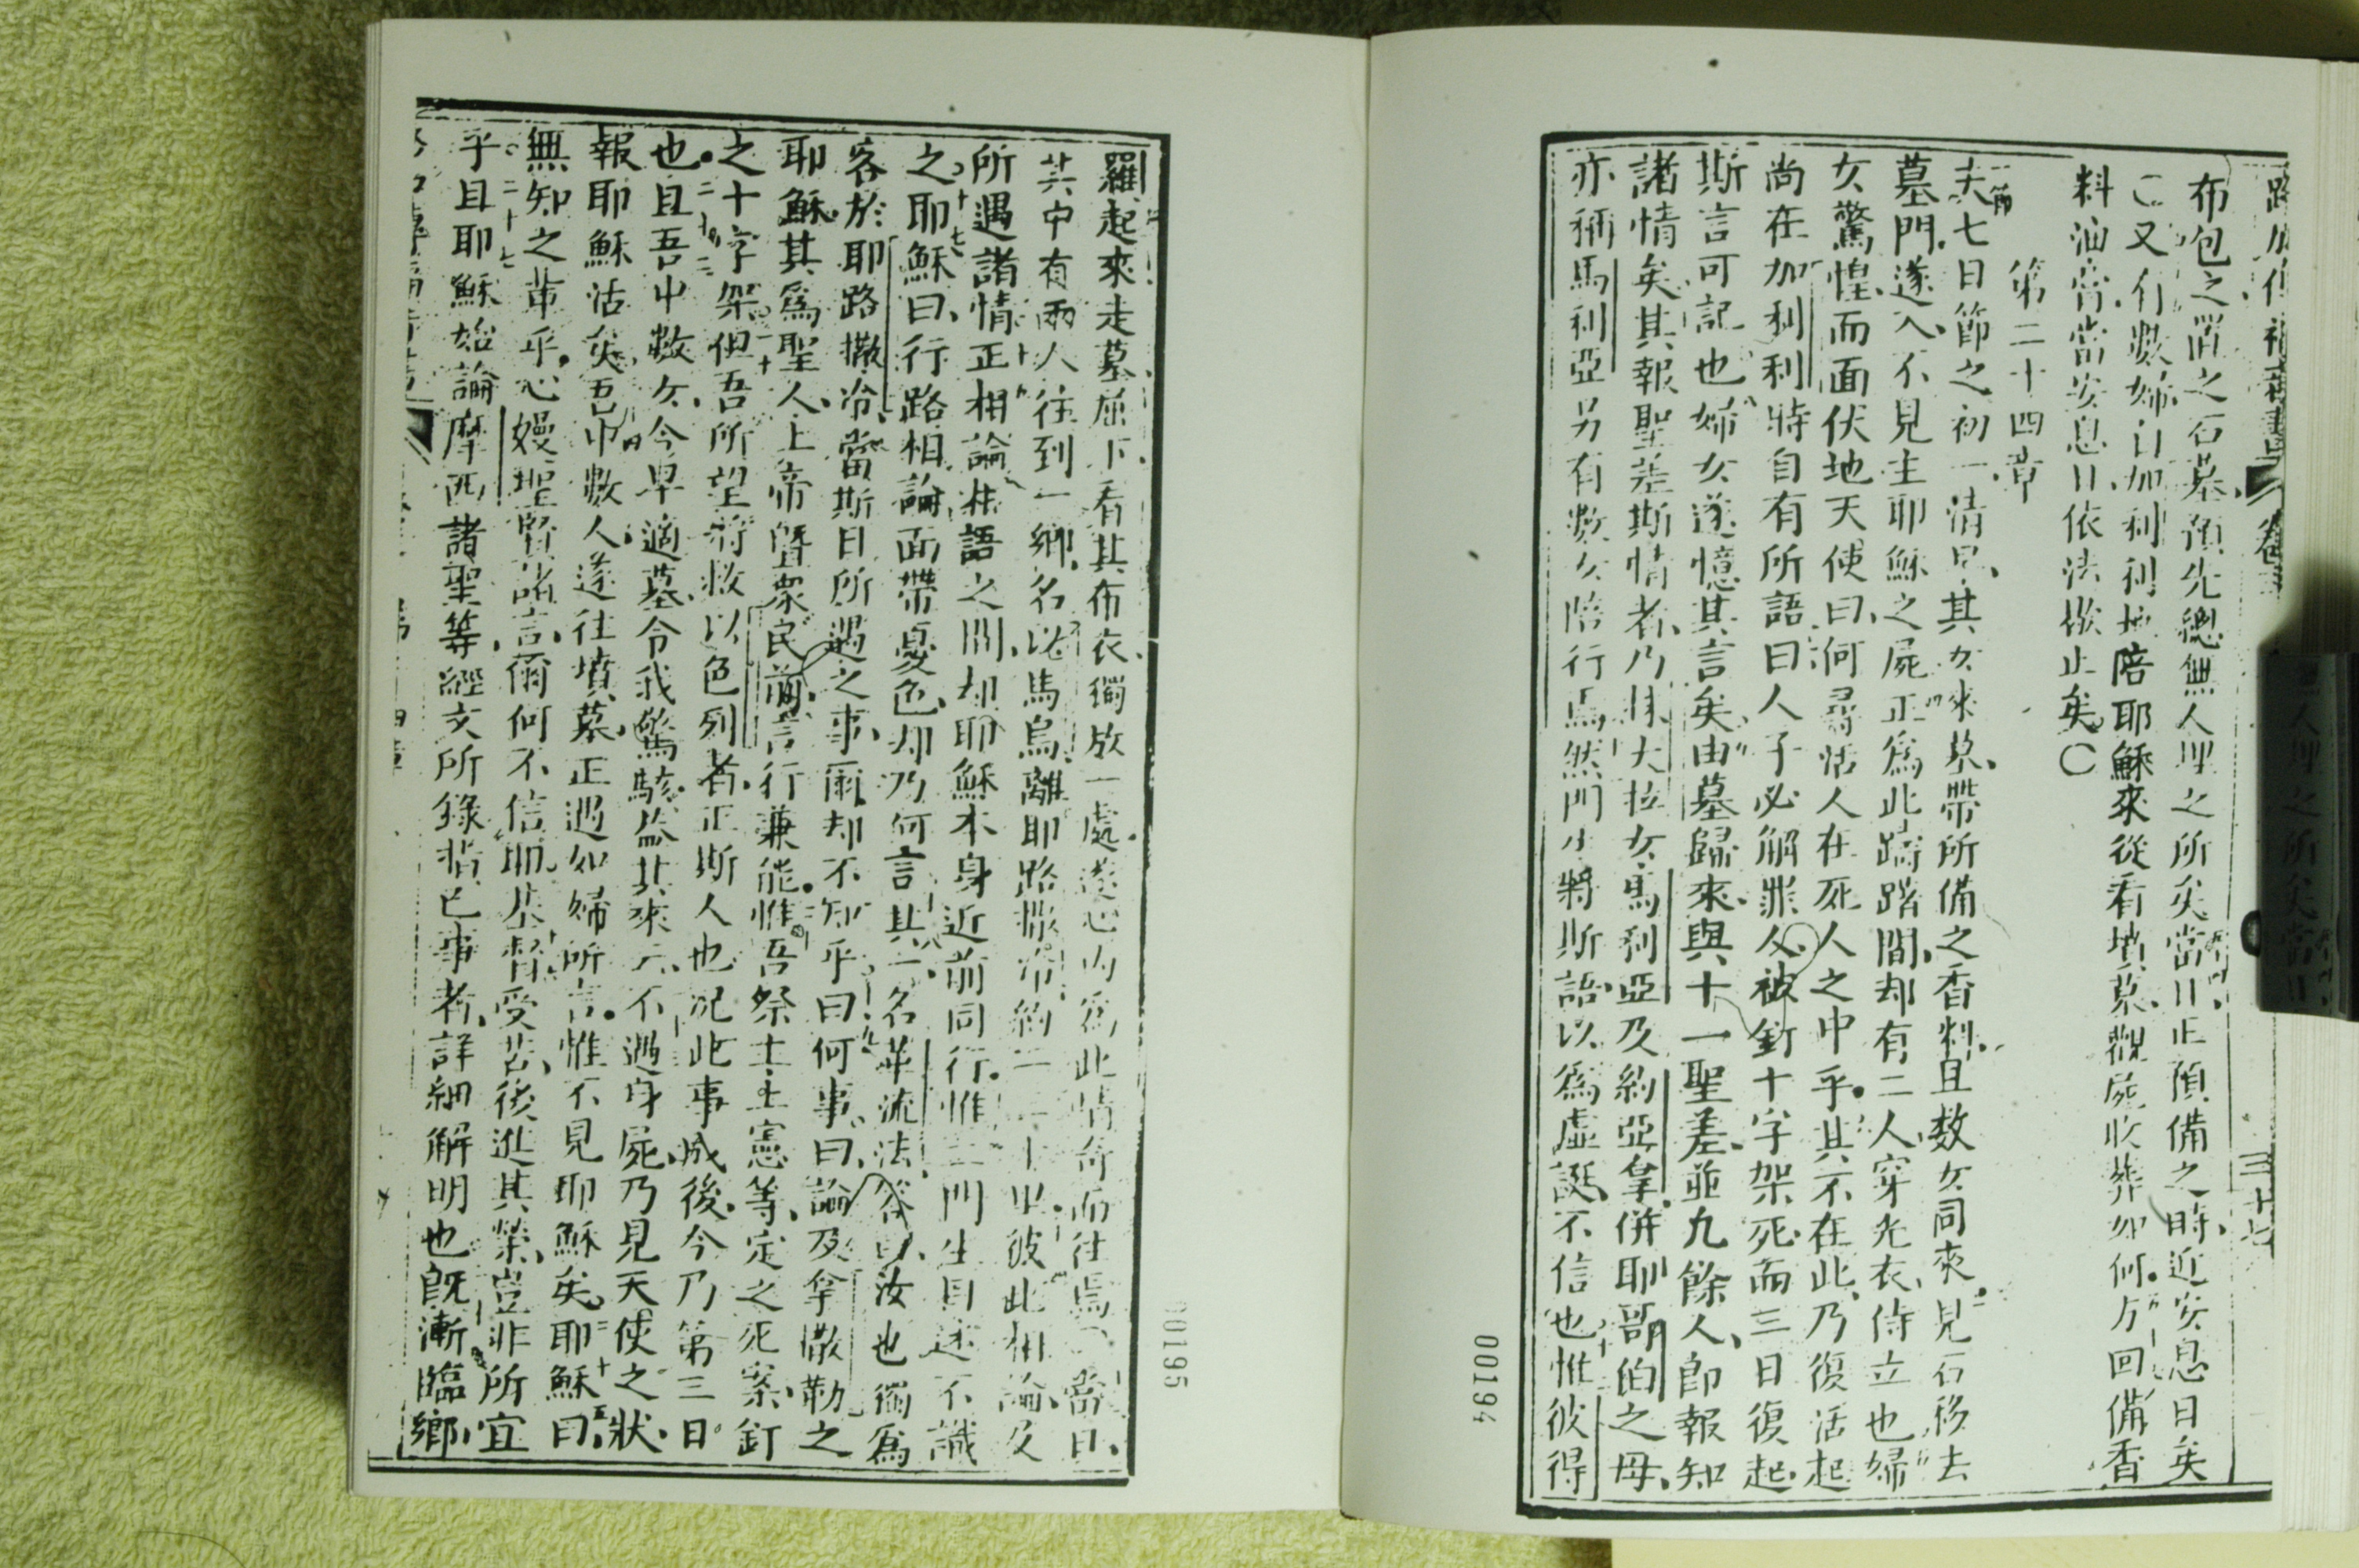 布包之置之石墓預先總無人埋之所矣當日正預備之時近安息日矣
〇又有數婦自加利利地陪耶穌來從看墳墓觀屍收葬如何方回備香
料油膏當安息日依法撤止矣〇
第二十四章
一節
夫七日節之初一清早其女來墓帶所備之香料且数女同來見石移去
墓門遂入不見主耶穌之屍正爲此躊躇間却有二人穿光衣侍立也婦
女驚惶而面伏地天使曰何尋活人在死人之中乎其不在此乃復活起
尚在加利利時自有所語曰人子必解罪人被釘十字架死而三日復起
斯言可記也婦女遂憶其言矣由墓歸來與十一聖差並九餘人即報知
諸情矣其報聖差斯情者乃抹大拉女馬利亞及約亞拿併耶哥伯之母
亦稱馬利亞另有數女陪行焉然門生將斯語以爲虛誕不信也惟彼得
三十七
00194
羅起來走墓屈下看其布衣獨放一處遂心內爲此情奇而往焉〇當日
其中有兩人往到一鄉名以馬烏離耶路撒冷約二三十里彼此相論及
所遇諸情正相論相語之間却耶穌本身近前同行惟二門生目迷不識
之耶穌曰行路相論面帶憂色却乃何言其一名革流法答曰汝也獨爲
客於耶路撒冷當斯日所遇之事爾却不知乎曰何事曰論及拿撒勒之
耶穌其爲聖人上帝曁衆民前言行兼能惟吾祭士主憲等定之死案釘
之十字架但吾所望將救以色列者正斯人也况此事成後今乃第三日
也且吾中數女今早適墓令我驚駭益其來云不遇身屍乃見天使之狀
報耶穌活矣吾中數人遂往墳墓正遇如婦所言惟不見耶穌矣耶穌曰
無知之輩乎心嫚聖賢諸言爾何不信耶基督受苦後進其榮豈非所宜
乎且耶穌始論摩西諸聖等經文所錄指已事者詳細解明也既漸臨鄉
00195